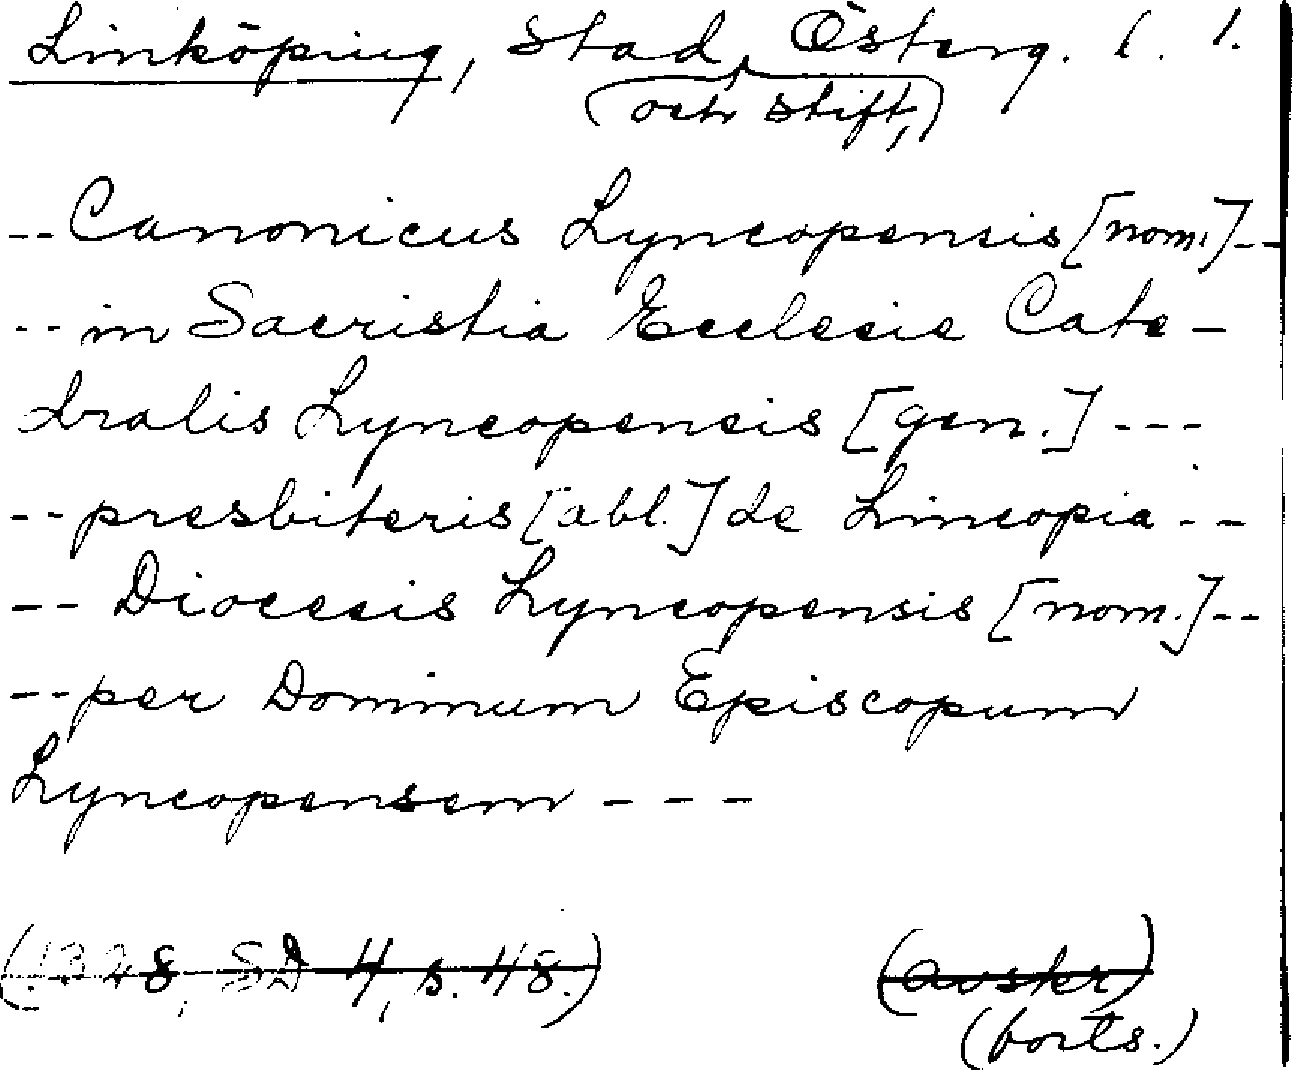 Linköping, Stad, Österg. l. 1.
(och stift,)
-- Canonicus Lyncopensis [nom.] --
-- in Sacristia Ecclesie Cate-
dralis Lyncopencis [gen.] ---
-- presbiteris [abl.] de Lincopia --
-- Diocecis Lyncopensis [nom.] --
-- per Dominum Episcopum
Lyncopensem ---
(1328, SD 4, s. 48.) (avskr)
(forts.)